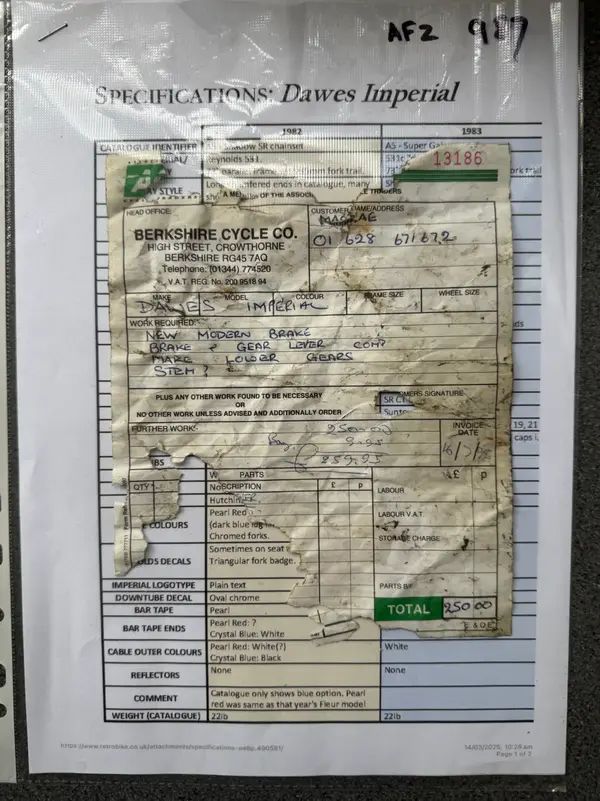 AFZ 987
SPECIFICATIONS: Dawes Imperial
1982 1983
CATALOGUE IDENTIFIER SR chainset A5 - Super
eynolds 531 13186
fork trail ork trail
AY STYLE ered ends in catalogue, many
A ME OF THE ASSOC E TRADERS
HEAD OFFICE: CUSTOMER NAME/ADDRESS
MACRAE
BERKSHIRE CYCLE CO. 01 628 671672
HIGH STREET, CROWTHORNE
BERKSHIRE RG45 7AQ
Telephone: (01344) 774520
V.A.T. REG. No. 200 9518 94
MAKE MODEL COLOUR FRAME SIZE WHEEL SIZE
DAWES IMPERIAL
WORK REQUIRED
NEW MODERN BRAKE
BRAKE & GEAR LEVER COM?
MAKE LOWER GEARS
STEM?
PLUS ANY OTHER WORK FOUND TO BE NECESSARY OMERS SIGNATURE
OR SR CT
NO OTHER WORK UNLESS ADVISED AND ADDITIONALLY ORDER Sunto
FURTHER WORK 250.00 INVOICE DATE 19, 21
9.95 caps i
£259.95
BS W PARTS £ p
QTY SCRIPTION £ p LABOUR
Hutchin
Pearl Red LABOUR V.A.T.
COLOURS (dark blue
Chromed forks. STORAGE CHARGE
LDS DECALS Sometimes on seat
Triangular fork badge.
IMPERIAL LOGOTYPE Plain text PARTS
DOWNTUBE DECAL Oval chrome
BAR TAPE Pearl TOTAL 250 00
BAR TAPE ENDS Pearl Red: ? E & O E
Crystal Blue: White
CABLE OUTER COLOURS Pearl Red: White(?) White
Crystal Blue: Black
REFLECTORS None None
COMMENT Catalogue only shows blue option. Pearl
red was same as that year's Fleur model
WEIGHT (CATALOGUE) 22lb 22lb
https://www.retrobike.co.uk/attachments/specifications-webp.490581/ 14/03/2025, 10:28 am
Page 1 of 2